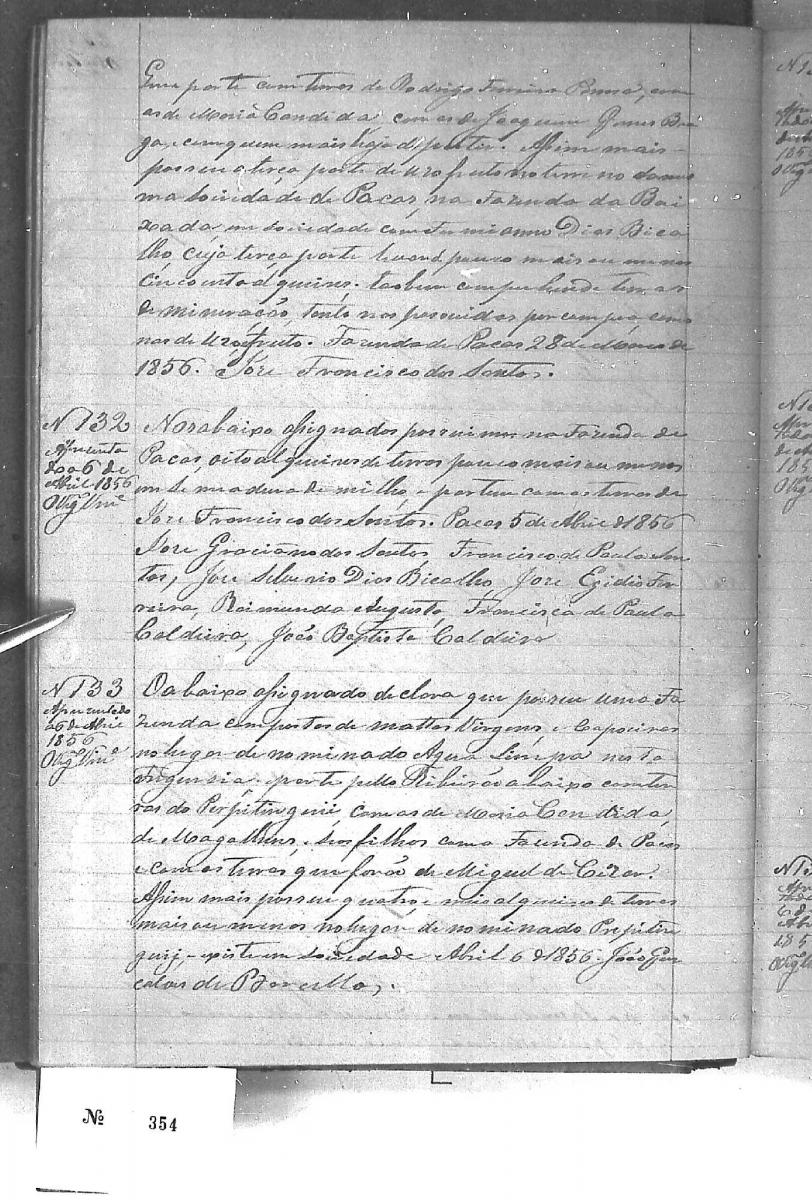 Que parte com terras de Rodrigo Ferreira com
as de Maria Candida com as de Joaquim Nunes Bra
ga, e com quem mais haja de partir. Assim mais
possuo a terça parte de uzofruto no terreno da mes
ma Sociedade de Pacas, na Fazenda da Bai
xada em Sociedade com Firmianno Dias Bica
lho cuja terça parte levará pouco mais ou menos
cincoenta alqueires. tambem comprehende terras
de mineração, tanto nas possuidas por compra, como
nas de uzofruto. Fazenda de Pacas 28 de Março de
1856. José Francisco dos Santos.
N 132
Apresenta
do a 6 de
Abril 1856
Vigº
Nos abaixo assignados possuimos na Fazenda de
Pacas, oito alqueires de terras pouco mais ou menos
em semeadura de milho, e partem com as terras de
José Francisco dos Santos. Pacas 5 de Abril d 1856
José Graciano dos Santos, Francisco de Paula San
tos, José Silverio Dias Bicalho, José Egidio Fer
reira, Raimundo Augusto, Francisco de Paula
Caldeira, João Baptista Caldeira
N 133
Apresentado
a 6 de Abril
1856
Vigº
O abaixo assignado declara que possue uma Fa
zenda composta de mattos Virgens, e Capoeiras
no lugar denominado Agua Limpa nesta
Freguesia, e parte pello Ribeirão abaixo com ter
ras do com as de Maria Candida,
de Magalhens, e seos filhos com a Fazenda de Pacas
e com as terras que forão de Miguel de Cezar.
Assim mais possue quatro, e meio alqueires de terras
mais ou menos no lugar denominado
e existe em Sociedade Abril 6 d 1856. João Gon
calves de Barcellos.
N
6 d
185
Nº 354